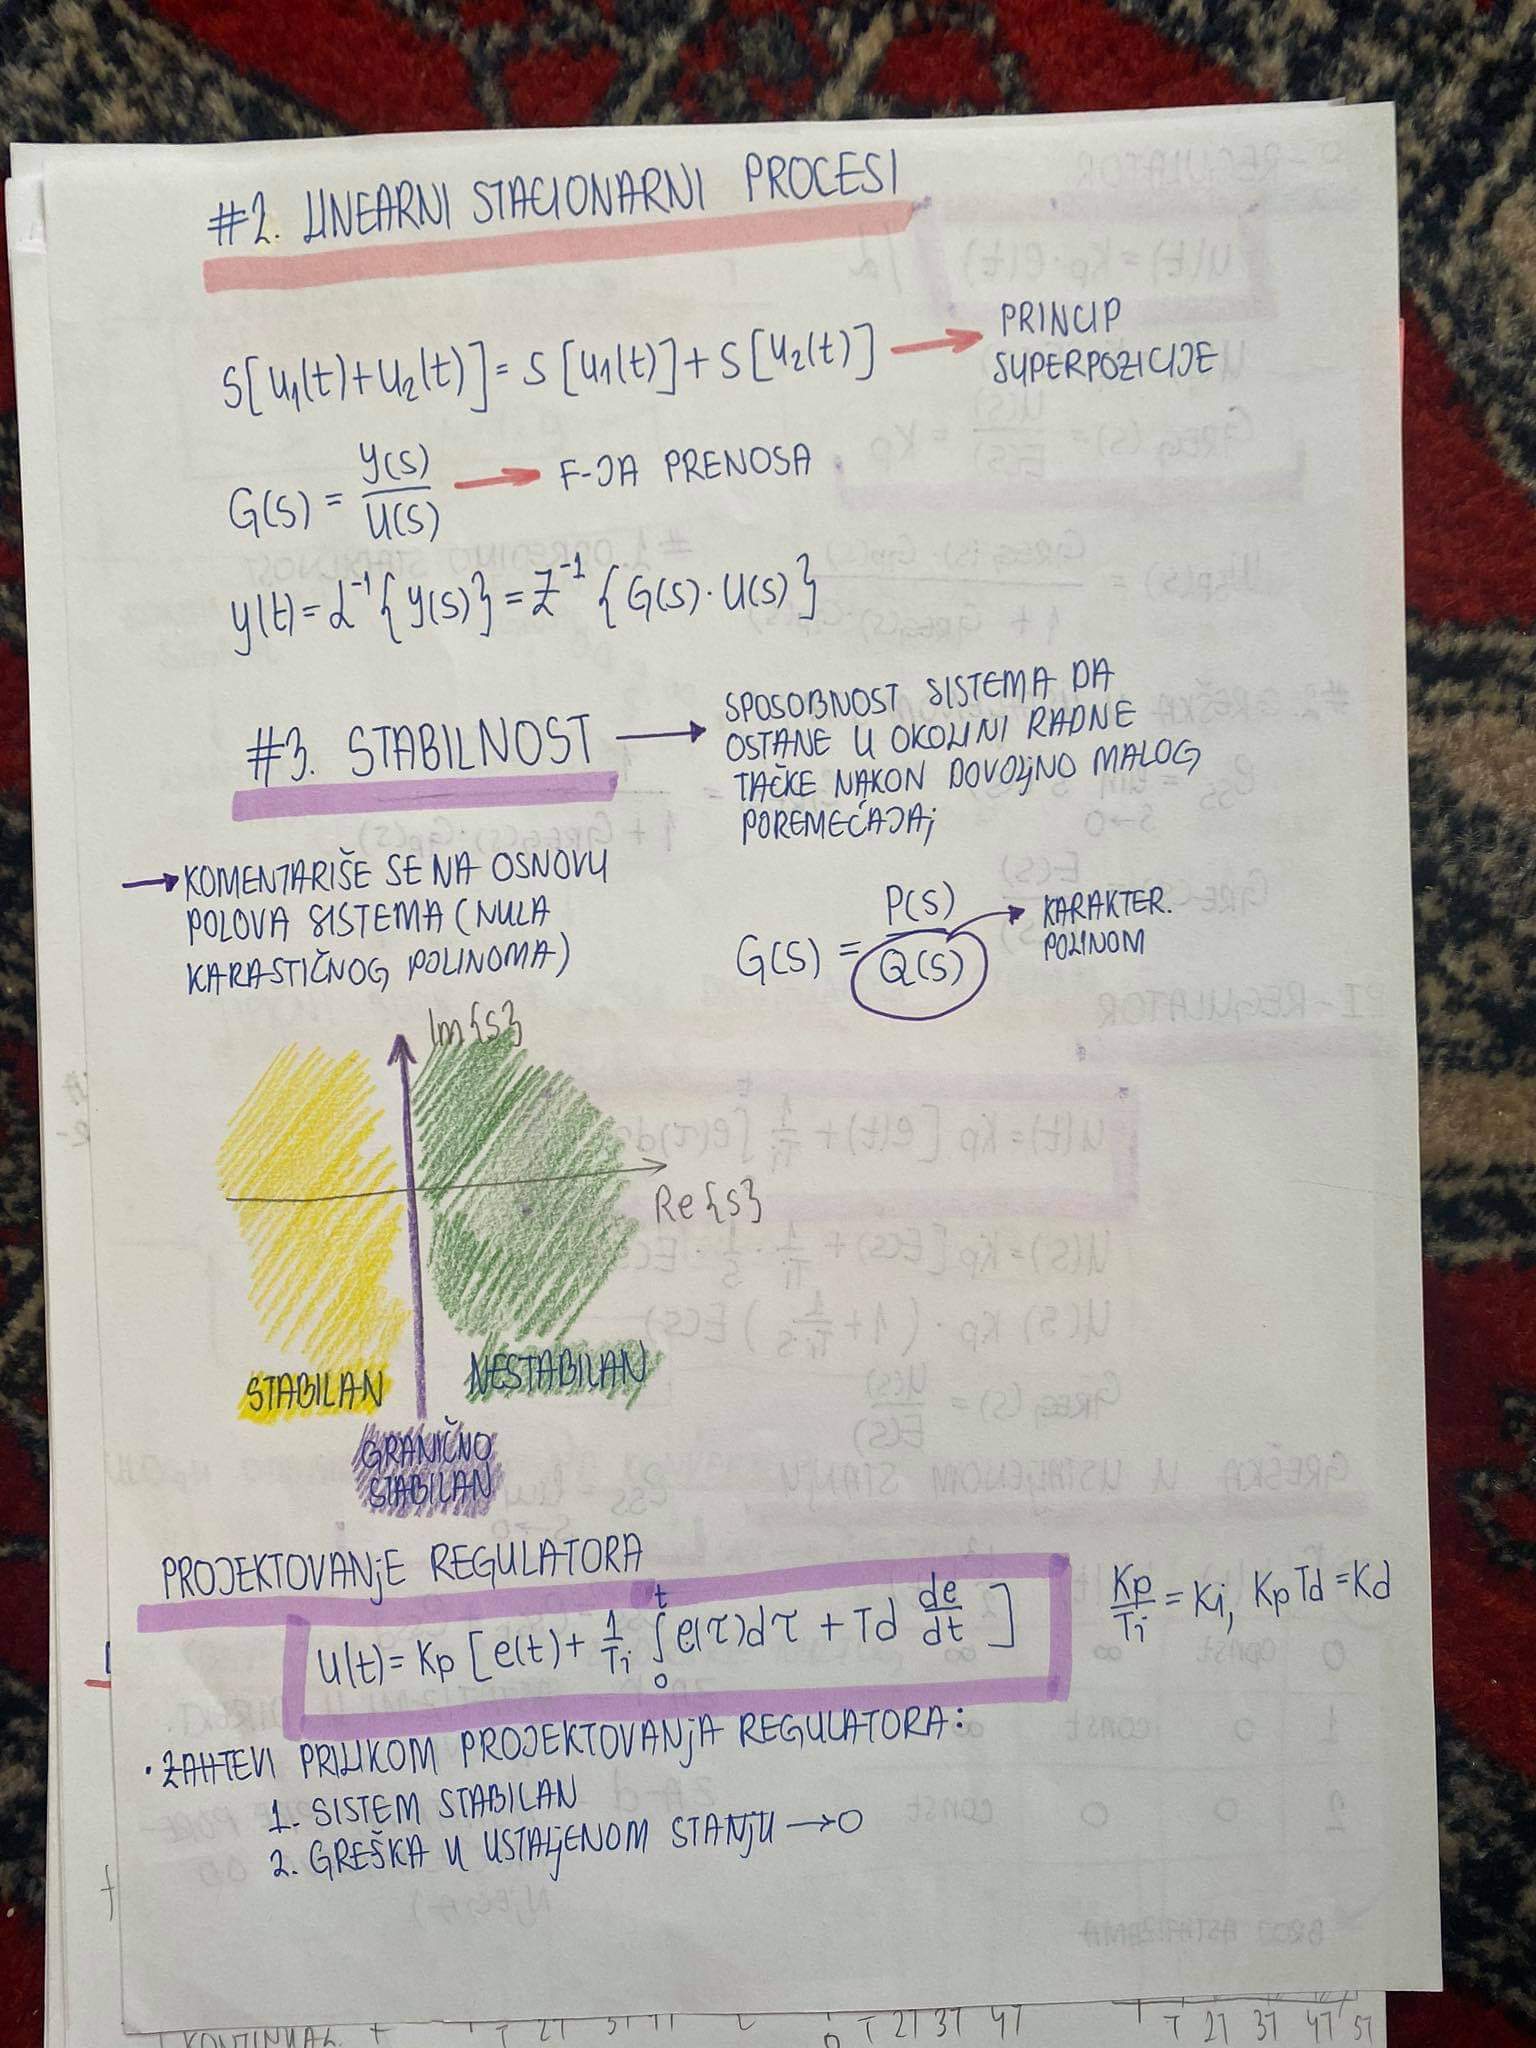 #2. LINEARNI STACIONARNI PROCESI
S[u₁(t)+u₂(t)] = S[u₁(t)] + S[u₂(t)] → PRINCIP
SUPERPOZICIJE
G(s) = Y(s)/U(s) → F-JA PRENOSA
y(t) = L⁻¹{Y(s)} = Z⁻¹{G(s)·U(s)}
#3. STABILNOST → SPOSOBNOST SISTEMA DA
OSTANE U OKOLINI RADNE
TAČKE NAKON DOVOLjNO MALOG
POREMEĆAJA;
→ KOMENTARIŠE SE NA OSNOVU
POLOVA SISTEMA (NULA
KARASTIČNOG POLINOMA)
G(s) = P(s)/Q(s) → KARAKTER.
POLINOM
Im{s}
Re{s}
STABILAN
NESTABILAN
GRANIČNO
STABILAN
PROJEKTOVANjE REGULATORA
u(t) = Kp [e(t) + 1/Ti ∫₀ᵗ e(τ)dτ + Td de/dt]
Kp/Ti = Ki, Kp Td = Kd
· ZAHTEVI PRILIKOM PROJEKTOVANjA REGULATORA:
1. SISTEM STABILAN
2. GREŠKA U USTALjENOM STANjU → 0
T 2T 3T 4T
T 2T 3T 4T 5T